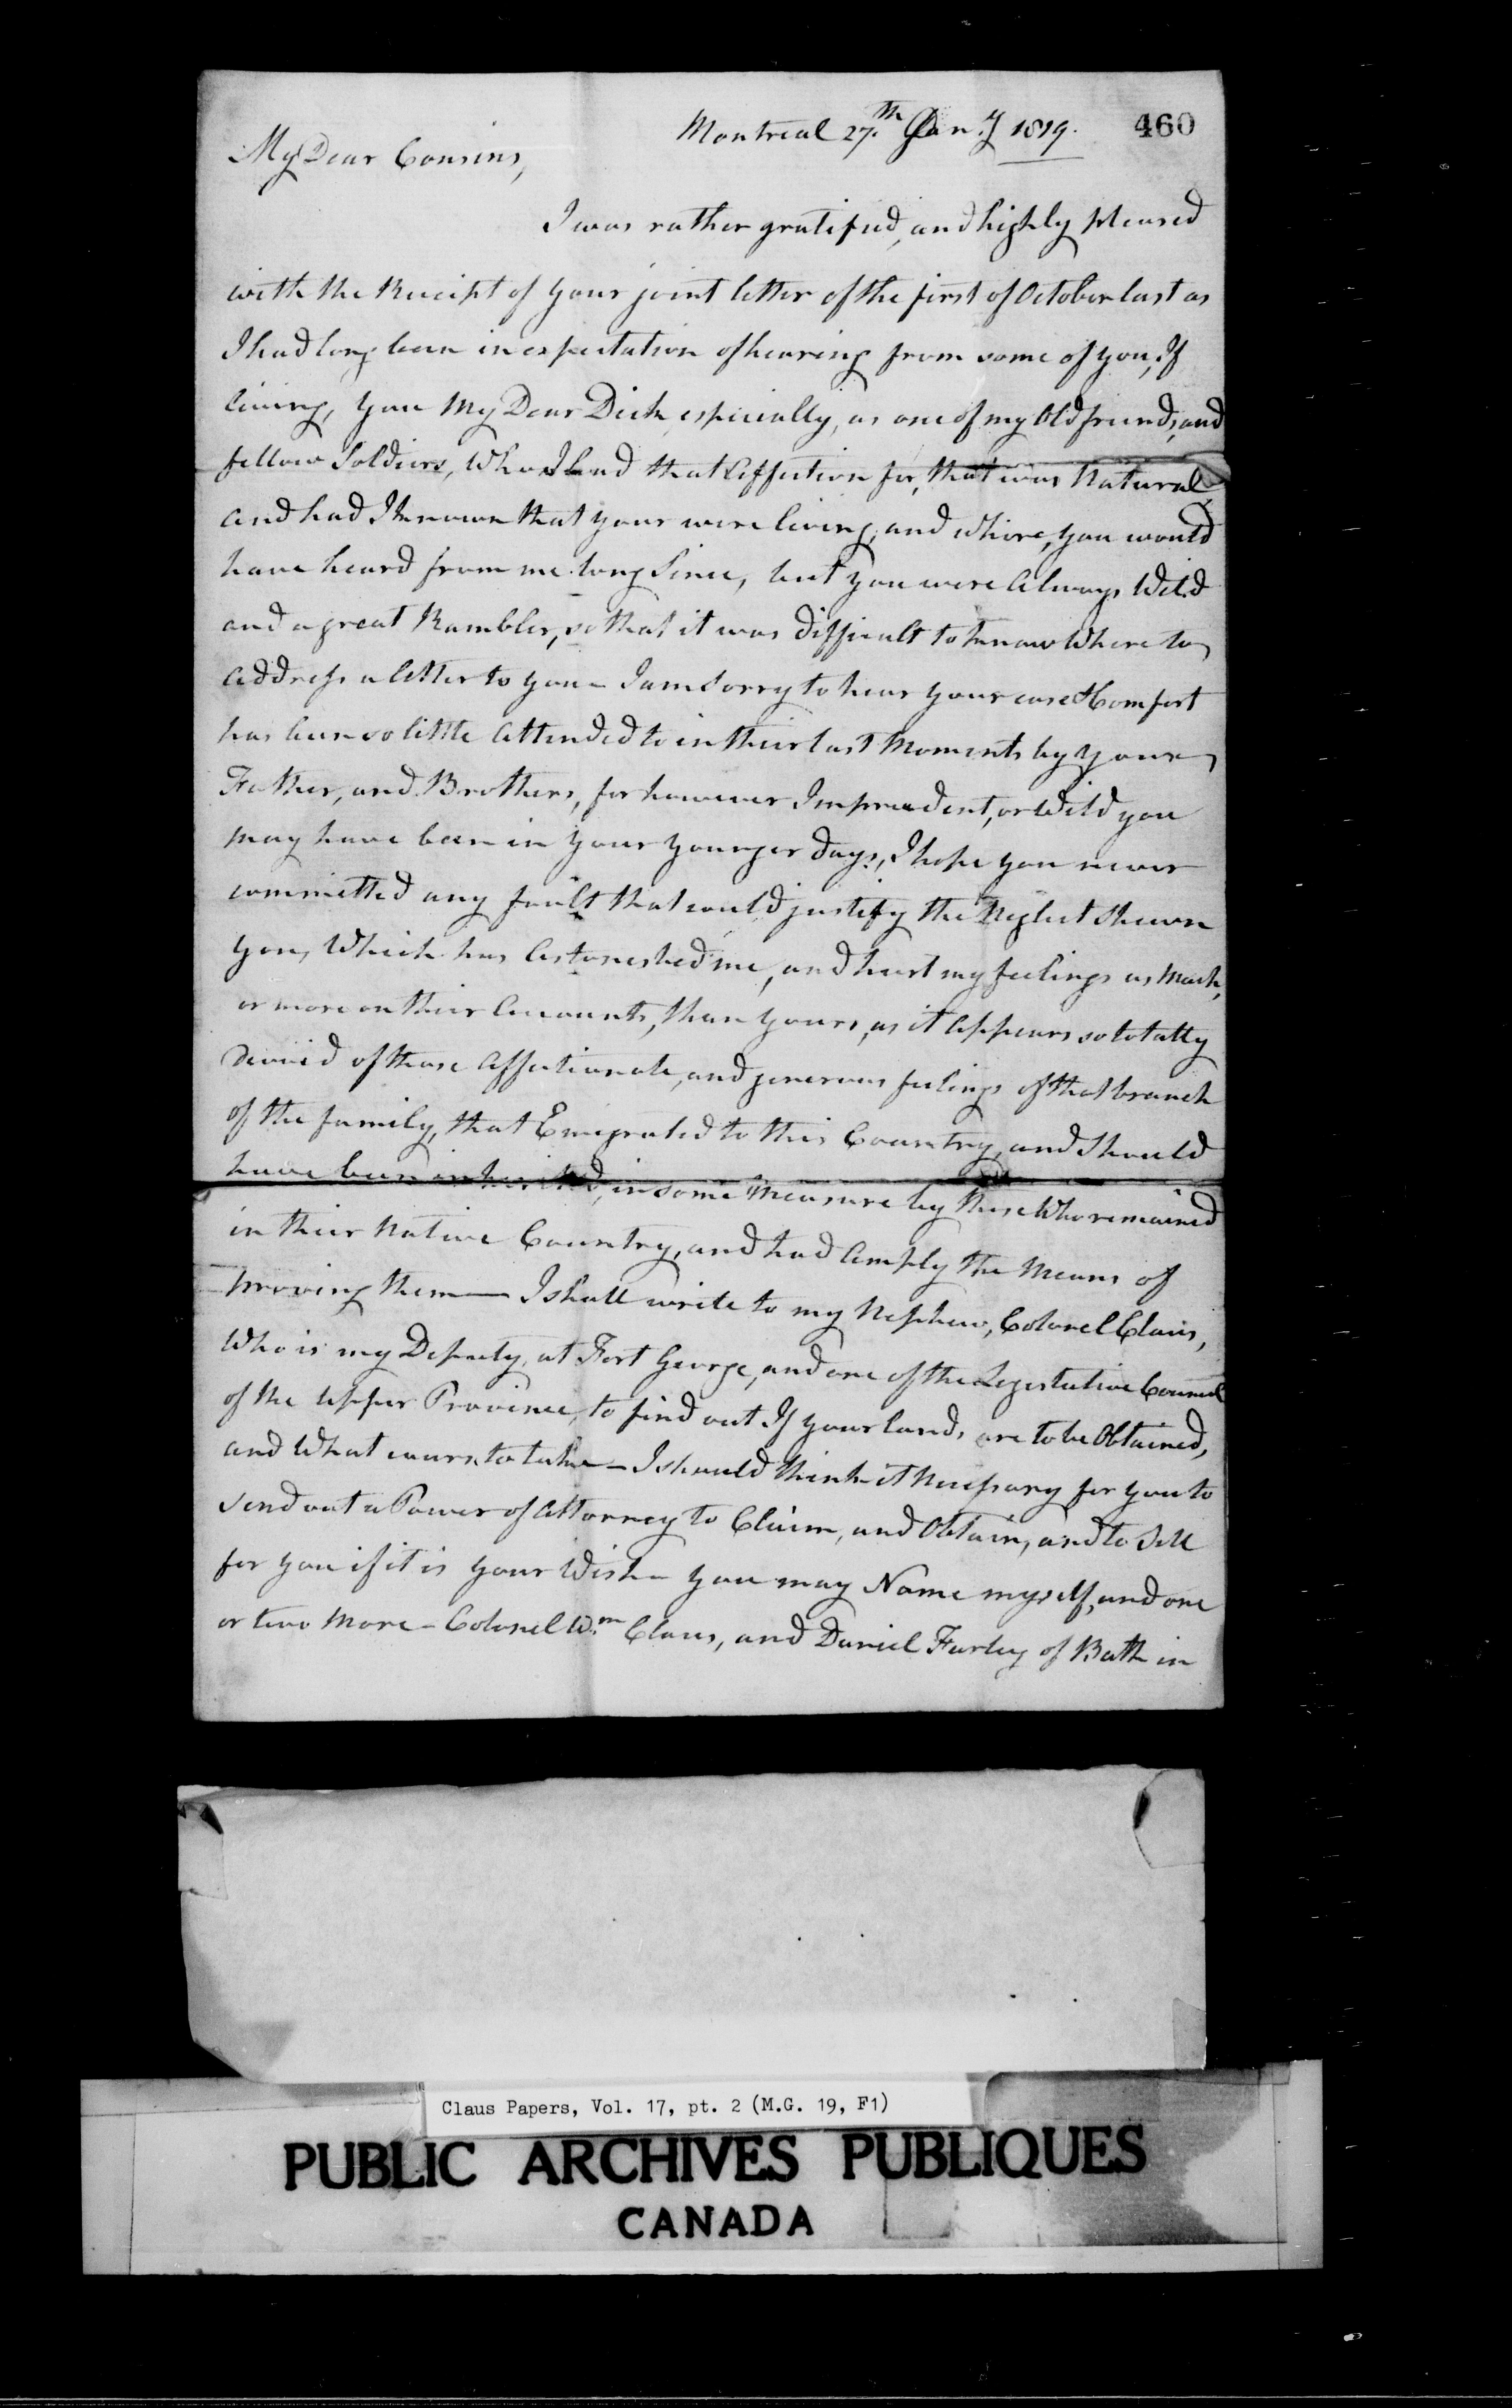 460
Montreal 27.th Jan.y 1819.
My Dear Cousins,
I was rather gratified, and highly pleased
with the Receipt of your joint letter of the first of October last as
I had long been in expectation of hearing from some of you, If
living, you My Dear Dick especially, as one of my Old friends, and
fellow Soldiers, Who I had that Affection for, that was Natural
and had I known that your were living, and where, you would
have heard from me long Since, but you were Always Wild
and a great Rambler, so that it was difficult to know Where to
address a letter to you – I am Sorry to hear your ease & Comfort
has been so little Attended to in their last Moments by your
Father, and Brothers, for however Imprudent, or Wild you
may have been in your younger days, I hope you never
committed any fault that could justify the Neglect Shewn
you, Which has Astonished me, and hurt my feelings as Much,
or more on their Accounts, than yours, as it Appears so totally
devoid of those Affectionate, and generous feelings of that branch
of the family, that Emigrated to this Country, and Should
have been inherited, in some Measure by those Who remained
in their Native Country, and had Amply the Means of
proving them — I shall write to my Nephew, Colonel Claus,
Who is my Deputy, at Fort George, and one of the Legislative Council
of the Upper Province, to find out If your lands are to be Obtained,
and What course to take – I should think it Necessary for you to
send out a Power of Attorney to Claim, and Obtain, and to Sell
for you if it is your Wish – you may Name myself, and one
or two More – Colonel Wm Claus, and Daniel Farley of Bath in
Claus Papers, Vol. 17, pt. 2 (M.G. 19, F1)
PUBLIC ARCHIVES PUBLIQUES
CANADA